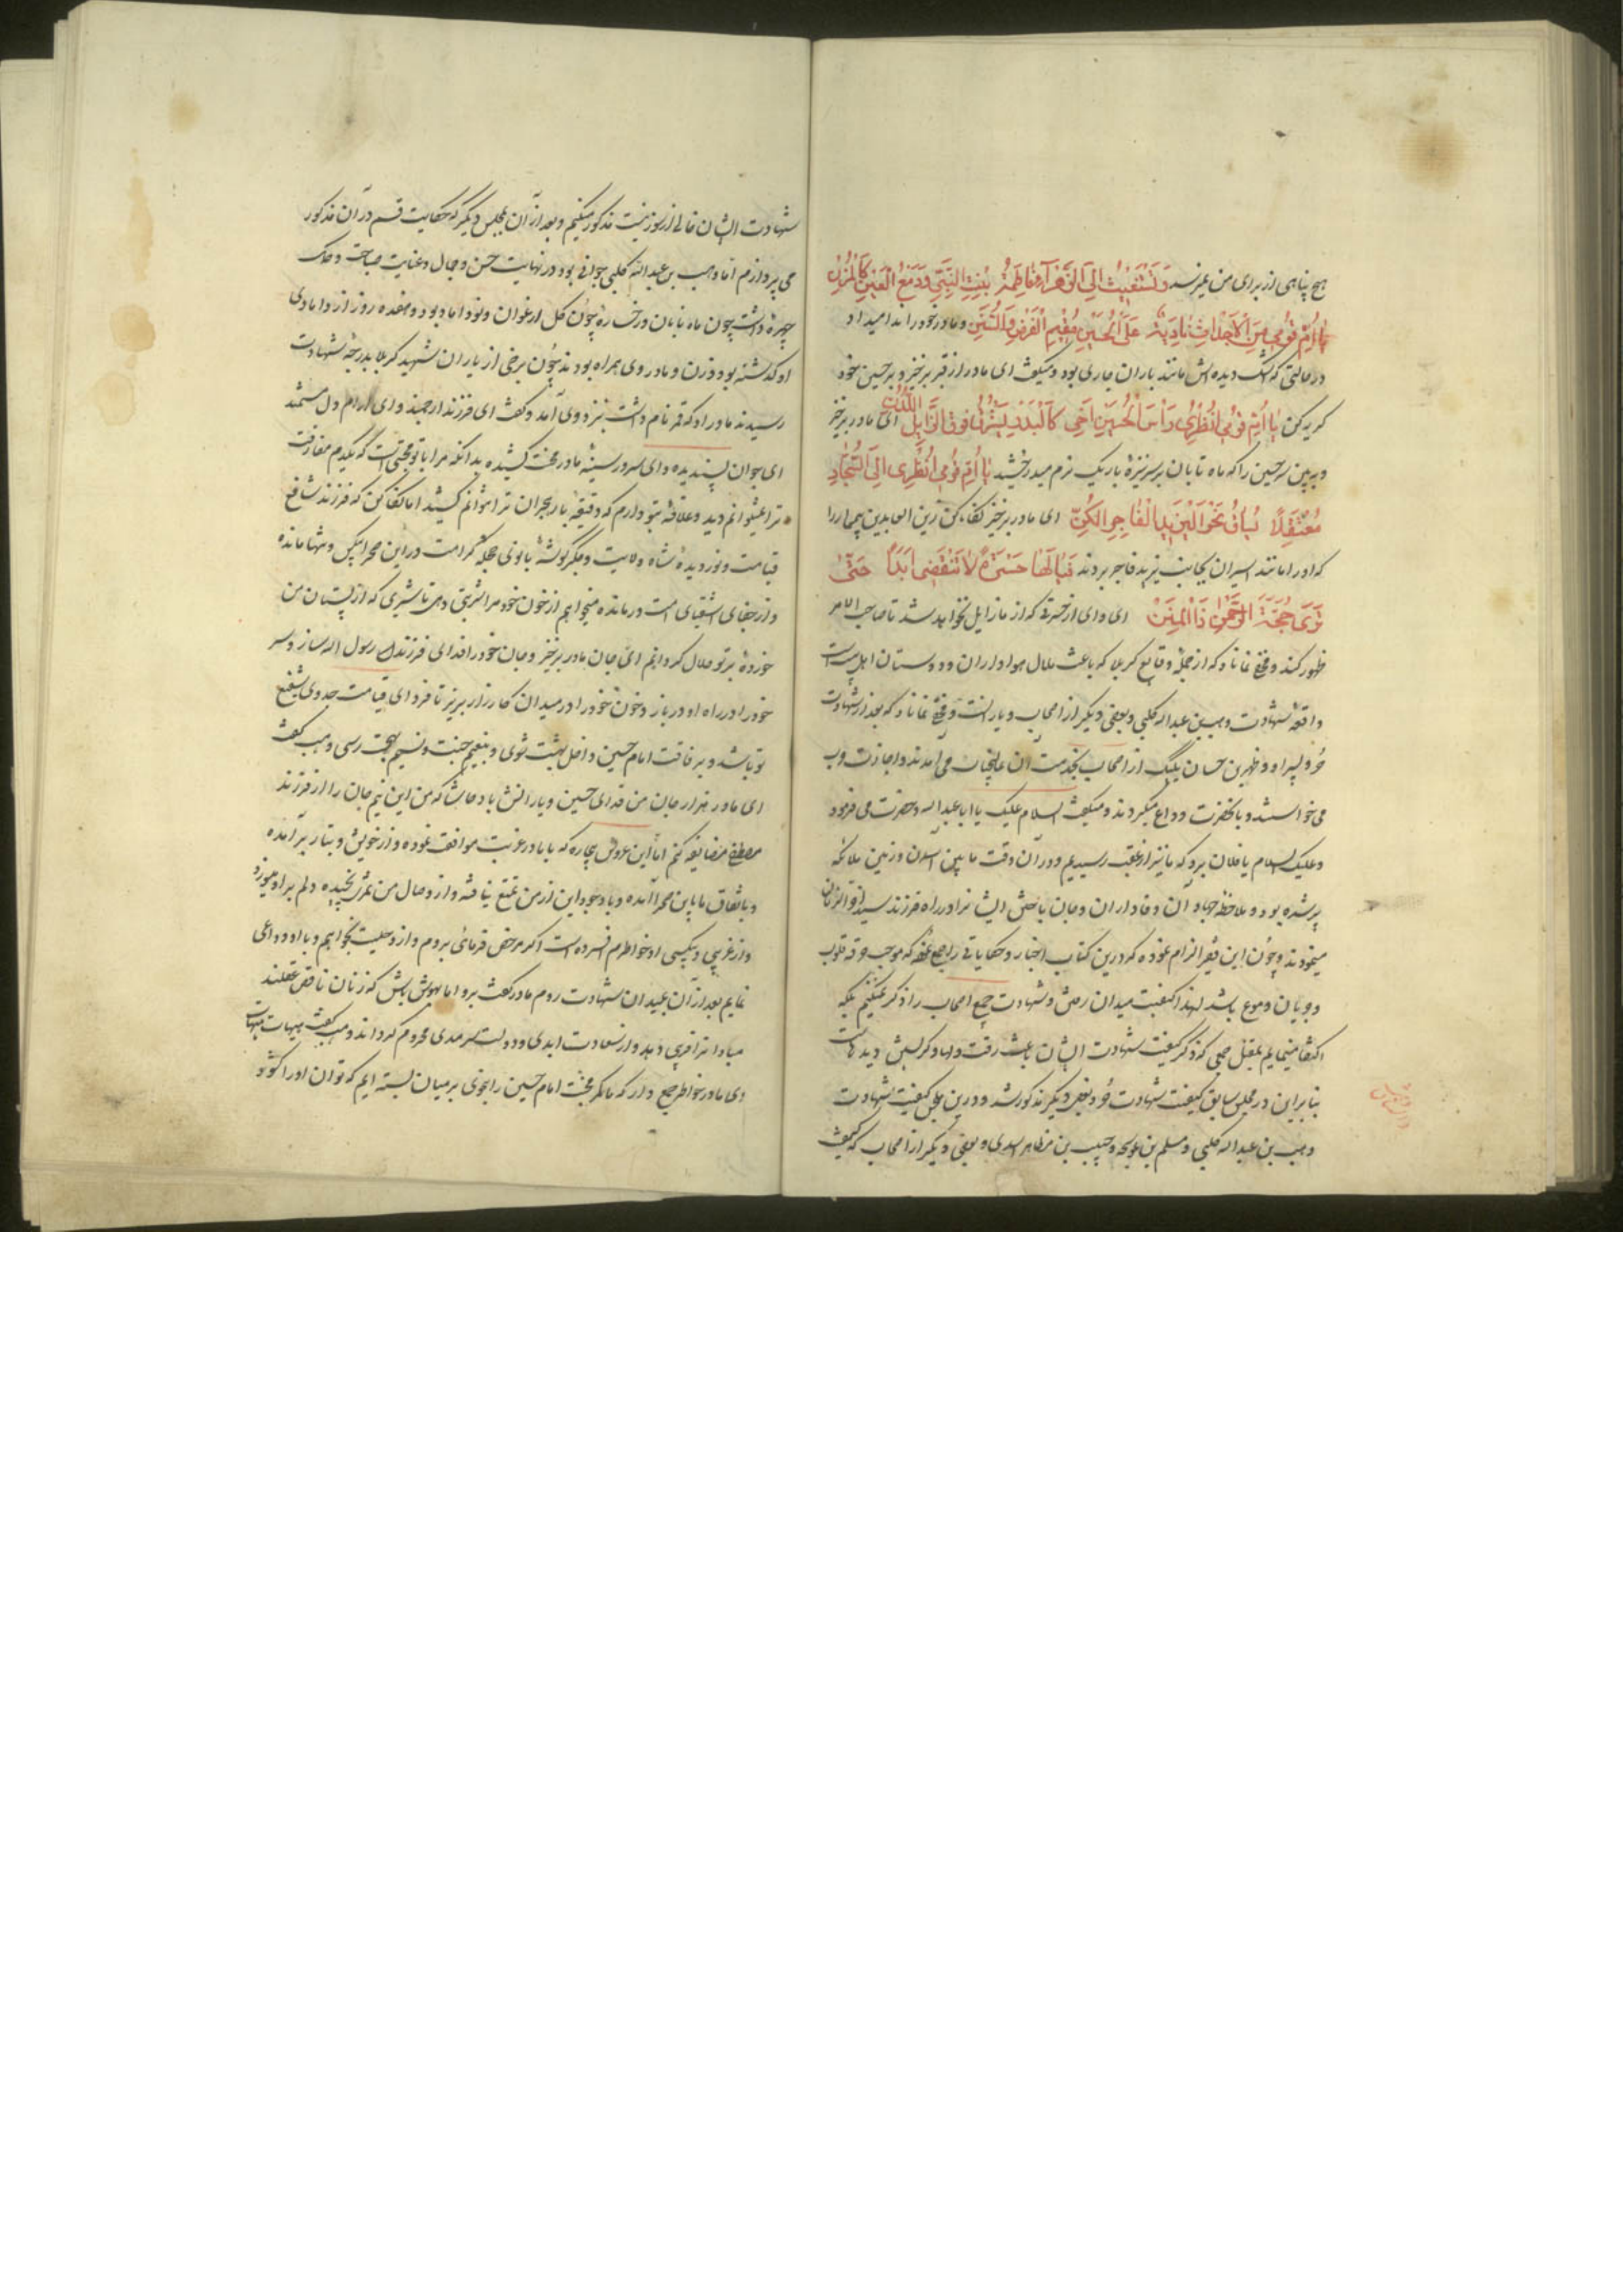 هیچ پناهی از برای من نمیرسد وَتَسْتَغیثُ اِلَی الزَّهْرآءِ فاطِمَةَ بِنْتِ النَّبِیِّ وَدَمْعُ الْعَیْنِ کَالْمُزُنِ
یا اُمِّ قُومی مِنَ الْاَجْداثِ نادِبَةً عَلَی الْحُسَیْنِ مُقیمِ الْفَرْضِ وَالسُّنَنِ و مادر خود را ندا میداد
در حالتی که اشک دیده اش مانند باران جاری بود و میکفت ای مادر از قبر برخیز و بر حسین خود
کریه کن یا اُمِّ قُومی انْظُری رَاْسَ الْحُسَیْنِ اَخی کَالْبَدْرِ یُشْرِقُ فَوْقَ الذّابِلِ اللَّدُنِ ای مادر برخیز
و ببین سر حسین را که ماه تابان بر سر نیزۀ باریک نرم میدرخشید یا اُمِّ قُومی انْظُری اِلَی السَّجّادِ
مُعْتَقَلاً یُساقُ نَحْوَ یَزیدِ الْفاجِرِ اللَّکِنِ ای مادر برخیز نکاه کن زین العابدین بیمار را
که او را مانند اسیران بجانب یزید فاجر بردند فَیالَها حَسْرَةً لا تَنْقَضی اَبَداً حَتّی
تَری حُجَّةَ الرَّحْمنِ ذَا الْمِنَنِ ای وای از حسرتی که از ما زایل نخواهد شد تا صاحب الامر
ظهور کند و مخفی نماناد که از جملۀ وقایع کربلا که باعث ملال هواداران و دوستان اهل بیت است
واقعۀ شهادت وهب بن عبد الله کلبی و بعضی دیکر از اصحاب و یاران است و مخفی نماناد که بعد از شهادت
حُر و پسر او و ظهیر بن حسان یکیک از اصحاب بخدمت آن عالیجناب می آمدند و اجازت حرب
می خواستند و با آنحضرت وداع میکردند و میکفت السلام علیک یا ابا عبد الله و حضرت می فرمود
و علیک السلام یا فلان برو که ما نیز از عقب رسیدیم و در آن وقت مابین آسمان و زمین ملائکه
پر شده بود و ملاحظه جهاد آن وفاداران و جان بازی ایشان در راه فرزند سید آخر الزمان
مینمودند و چون این فقیر الزام نموده که درین کتاب اخبار و حکایاتی را جمع نماید که موجب رقت قلوب
و جریان دموع باشد لهذا کیفیت میدان رفتن و شهادت جمیع اصحاب را ذکر نمیکنیم بلکه
اکتفا مینمایم بنقل جمعی که ذکر کیفیت شهادت ایشان باعث رقت دلها و کریستن دیده هاست
بنابراین در مجلس سابق کیفیت شهادت حُر و بعضی دیکر مذکور شد و درین مجلس کیفیت شهادت
وهب بن عبد الله کلبی و مسلم بن عوسجه و حبیب بن مظاهر اسدی و بعضی دیکر از اصحاب که کیفیت
شهادت ایشان خالی از سوزی نیست مذکور میکنیم و بعد از آن بمجلس دیکر که حکایت قسم در آن مذکور
می پردازم اما وهب بن عبد الله کلبی جوانی بود در نهایت حسن و جمال و غایت صباحت و نمک
چهرۀ داشت چون ماه تابان و رخسارۀ چون کل ارغوان و نوداماد بود و هفده روز از دامادی
او کذشته بود و زن و مادر وی همراه بودند چون برخی از یاران شهید کربلا بدرجۀ شهادت
رسیدند مادر او که قمر نام داشت بنزد وی آمد و کفت ای فرزند ارجمند و ای آرام دل مستمند
ای جوان پسندیده و ای سرور سینۀ مادر محنت کشیده بدانکه مرا با تو محبتی است که یکدم مفارقت
ترا نمیتوانم دید و علاقۀ بتو دارم که دقیقۀ بار هجران ترا نتوانم کشید اما نکاه کن که فرزند شافع
قیامت و نور دیدۀ شاه ولایت و جکر کوشۀ بانوی حجلۀ کرامت در این صحرا بیکس و تنها مانده
و از جفای اشقیای امت درمانده میخواهم از خون خود مرا شربتی دهی تا شیری که از پستان من
خوردۀ بر تو حلال کردانم ای جان مادر برخیز و جان خود را فدای فرزند رسول الله ساز و سر
خود را در راه او در باز و خون خود را در میدان کارزار بریز تا فردای قیامت جد وی شفیع
تو باشد و برفاقت امام حسین داخل بهشت شوی و بنعیم جنت و نسیم بهجت رسی وهب کفت
ای مادر هزار جان من فدای حسین و یارانش باد حاشا که من این نیم جان را از فرزند
مصطفی مضایقه کنم اما این عروس بیچاره که با ما در غربت موافقت نموده و از خویش و تبار برآمده
و باتفاق ما باین صحرا آمده و با وجود این از من تمتع نیافته و از وصال من ثمری نچیده دلم بر او میسوزد
و از غریبی و بیکسی او خواطرم افسرده است اکر مرخص فرمائی بروم و از وی حلیت بخواهم و با او وداعی
نمایم بعد از آن بمیدان شهادت روم مادر کفت برو اما بهوش باش که زنان ناقص عقلند
مبادا ترا فریب دهد و از سعادت ابدی و دولت سرمدی محروم کرداند وهب کفت هیهات هیهات
ای مادر خواطر جمع دار که ما کمر محبت امام حسین را بنحوی بر میان بسته ایم که توان او را کشود